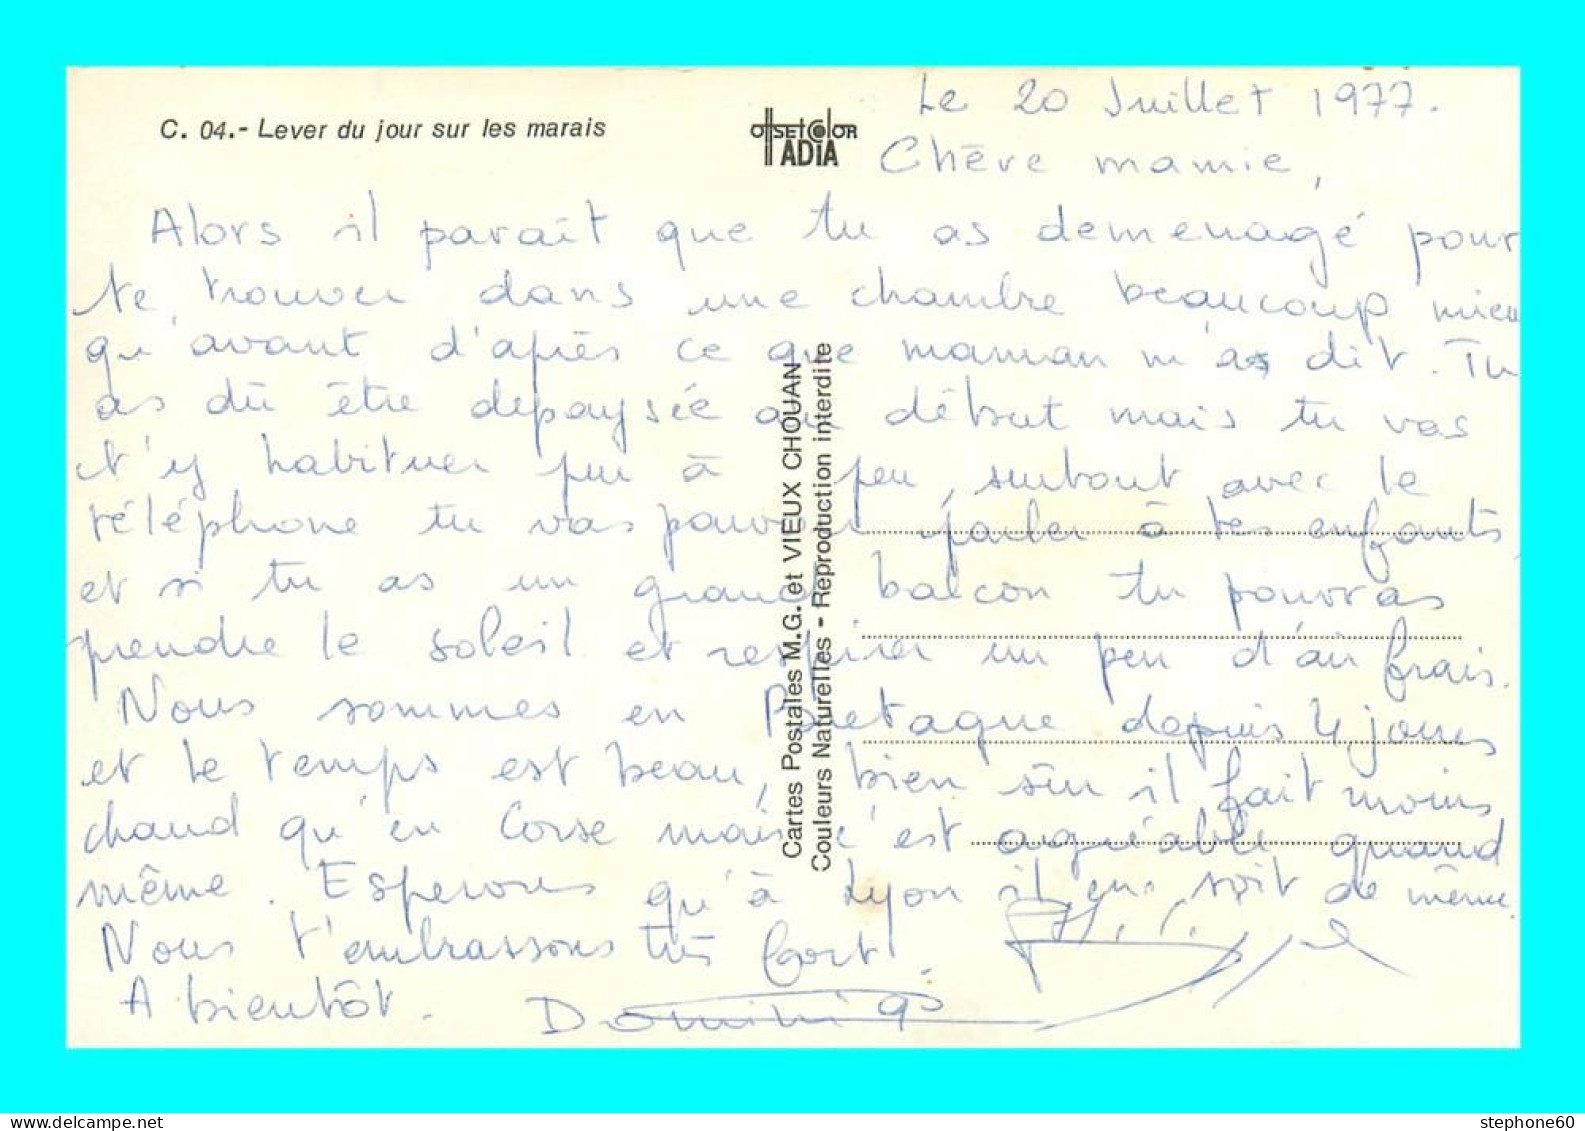 C. 04.- Lever du jour sur les marais
OffSEtColOR
ADIA
Le 20 Juillet 1977.
Chère mamie,
Alors il parait que tu as demenagé pour
te trouver dans une chambre beaucoup mieu
qu'avant d'après ce que maman m'as dit. Tu
as dû être depaysée au début mais tu vas
t'y habituer peu à peu, surtout avec le
téléphone tu vas pouvoir parler à tes enfants
et si tu as un grand balcon tu pourras
prendre le soleil et respirer un peu d'air frais.
Nous sommes en Bretagne depuis 4 jours
et le temps est beau, bien sûr il fait moins
chaud qu'en Corse mais c'est agréable quand
même. Esperons qu'à Lyon il en soit de même.
Nous t'embrassons très fort!
A bientôt. Dominiq
Cartes Postales M.G. et VIEUX CHOUAN
Couleurs Naturelles - Reproduction interdite
stephone60